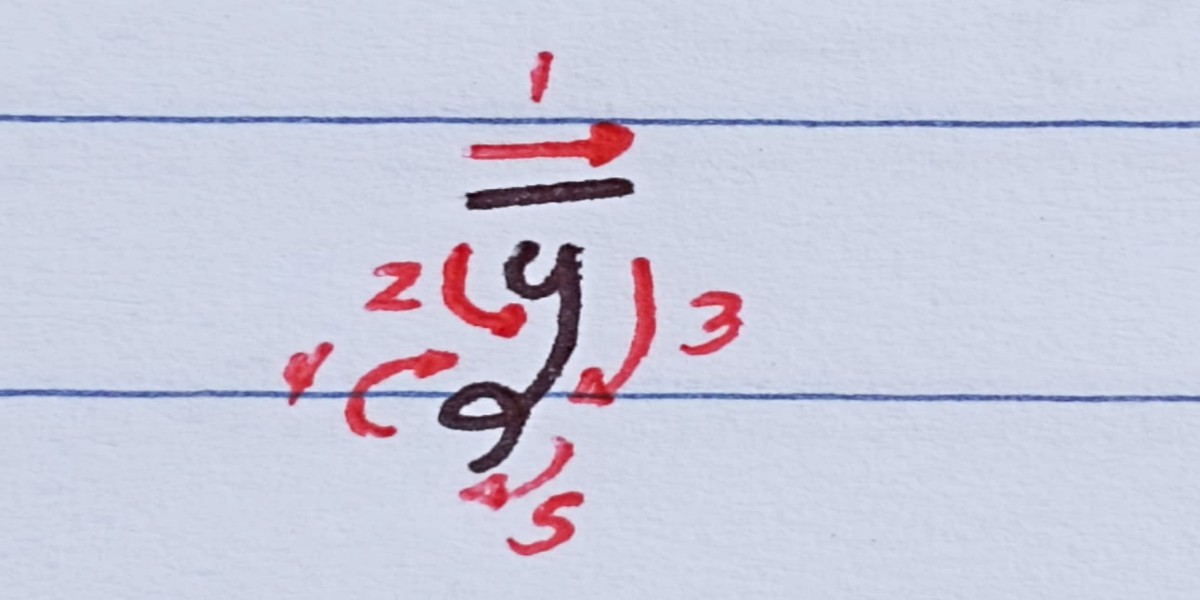 1
2 3
4
5